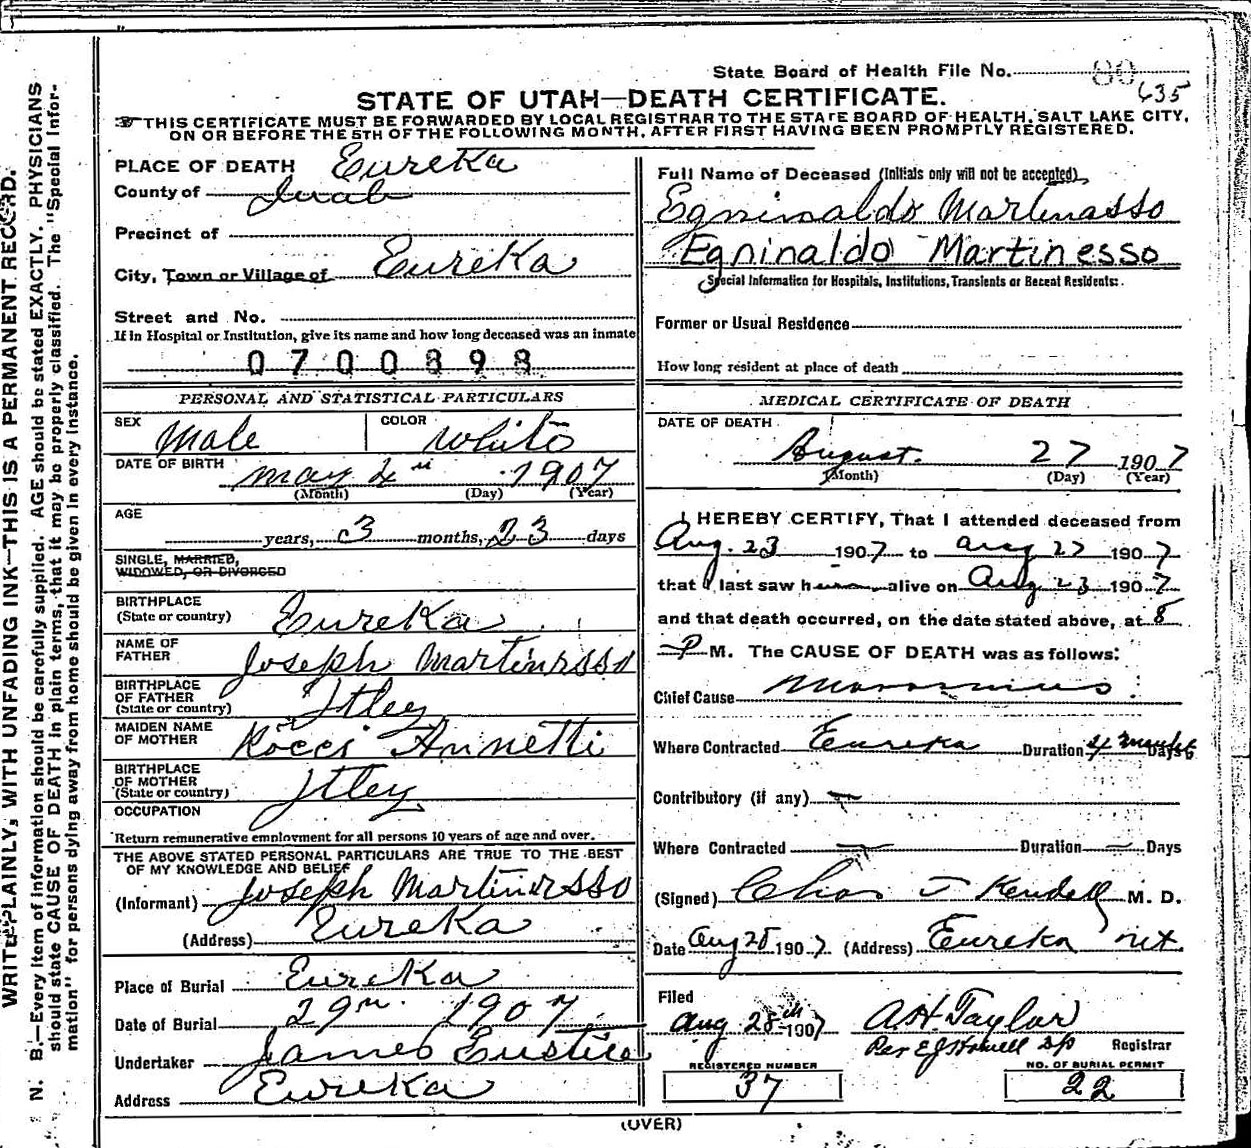 State Board of Health File No. 80
635
STATE OF UTAH—DEATH CERTIFICATE.
THIS CERTIFICATE MUST BE FORWARDED BY LOCAL REGISTRAR TO THE STATE BOARD OF HEALTH, SALT LAKE CITY,
ON OR BEFORE THE 5TH OF THE FOLLOWING MONTH, AFTER FIRST HAVING BEEN PROMPTLY REGISTERED.
WRITE PLAINLY, WITH UNFADING INK—THIS IS A PERMANENT RECORD.
N. B.—Every item of information should be carefully supplied. AGE should be stated EXACTLY. PHYSICIANS
should state CAUSE OF DEATH in plain terms, that it may be properly classified. The "Special Infor-
mation" for persons dying away from home should be given in every instance.
PLACE OF DEATH Eureka
County of Juab
Precinct of
City, Town or Village of Eureka
Street and No.
If in Hospital or Institution, give its name and how long deceased was an inmate
0700898
PERSONAL AND STATISTICAL PARTICULARS
SEX Male COLOR White
DATE OF BIRTH May 4th 1907
(Month) (Day) (Year)
AGE
years, 3 months, 23 days
SINGLE, MARRIED,
WIDOWED, OR DIVORCED
BIRTHPLACE
(State or country) Eureka
NAME OF
FATHER Joseph Martinesso
BIRTHPLACE
OF FATHER
(State or country) Itley
MAIDEN NAME
OF MOTHER Rocci Annetti
BIRTHPLACE
OF MOTHER
(State or country) Itley
OCCUPATION
Return remunerative employment for all persons 10 years of age and over.
THE ABOVE STATED PERSONAL PARTICULARS ARE TRUE TO THE BEST
OF MY KNOWLEDGE AND BELIEF
(Informant) Joseph Martinesso
(Address) Eureka
Place of Burial Eureka
Date of Burial 29th 1907
Undertaker James Eustice
Address Eureka
Full Name of Deceased (Initials only will not be accepted)
Egninaldo Martinasso
Egninaldo Martinesso
Special Information for Hospitals, Institutions, Transients or Recent Residents:
Former or Usual Residence
How long resident at place of death
MEDICAL CERTIFICATE OF DEATH
DATE OF DEATH
August. 27 1907
(Month) (Day) (Year)
I HEREBY CERTIFY, That I attended deceased from
Aug. 23 1907 to Aug 27 1907
that I last saw him alive on Aug 23 1907
and that death occurred, on the date stated above, at 8
P M. The CAUSE OF DEATH was as follows:
Chief Cause Marasmus
Where Contracted Eureka Duration 4 months Days
Contributory (if any)
Where Contracted Duration Days
(Signed) Chas J Kendell M. D.
Date Aug 28 1907 (Address) Eureka Utx
Filed
Aug 28th 1907 A.H. Taylor
Per E J Howell Dp Registrar
REGISTERED NUMBER NO. OF BURIAL PERMIT
37 22
(OVER)